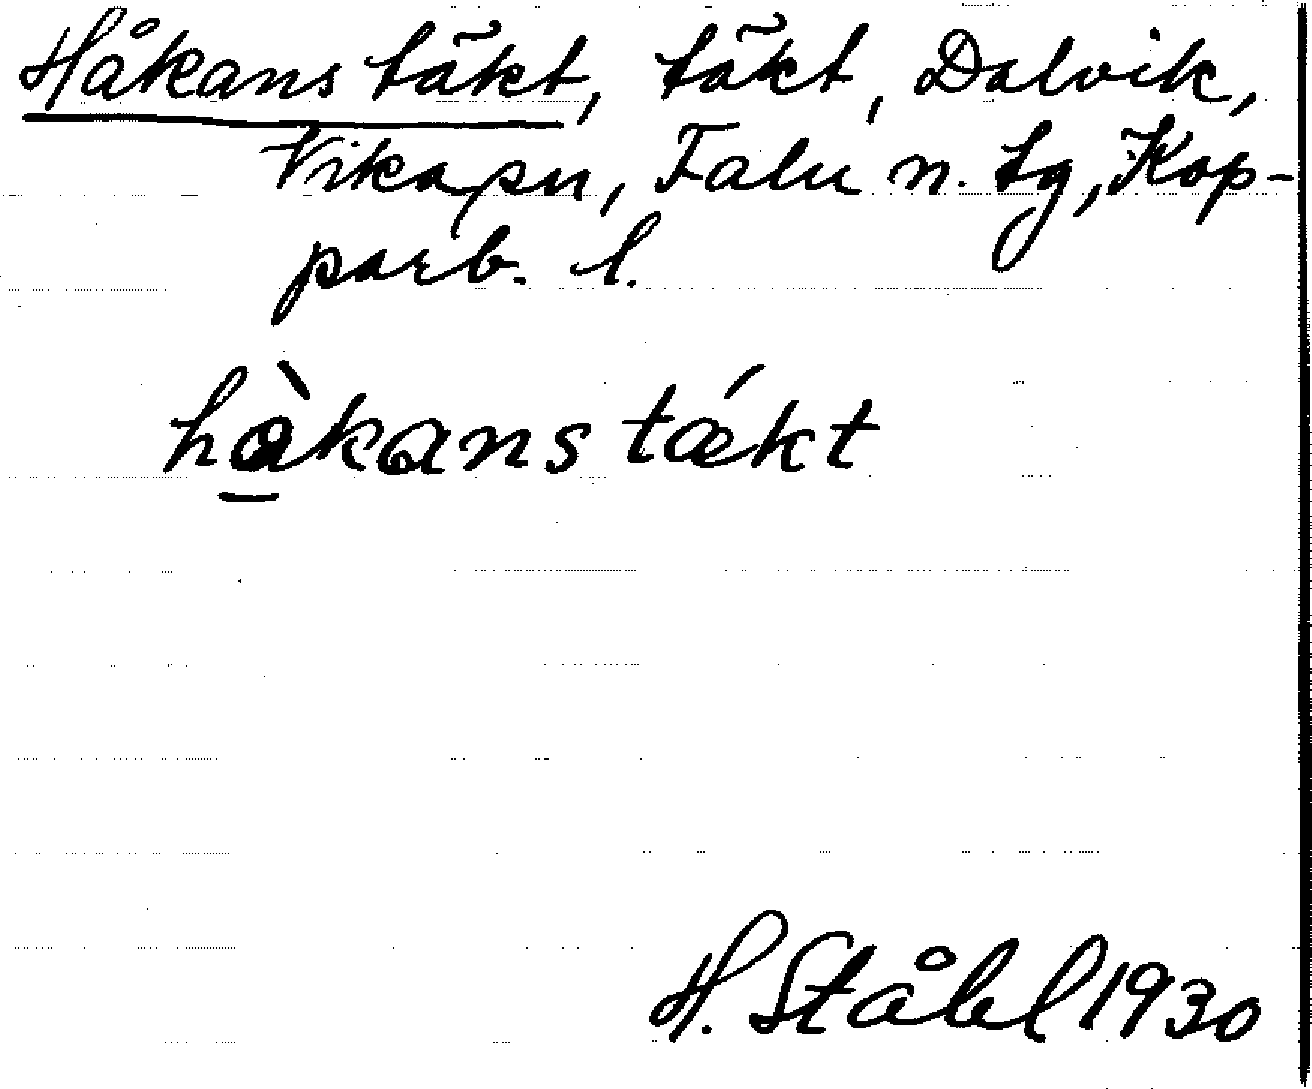 Håkans täkt, täkt, Dalvik,
Vika sn, Falu n. tg, Kop-
parb. l.
hàkans tǽkt
H. Ståhl 1930